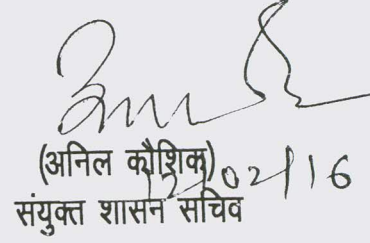 (अनिल कौशिक)
12/02/16
संयुक्त शासन सचिव